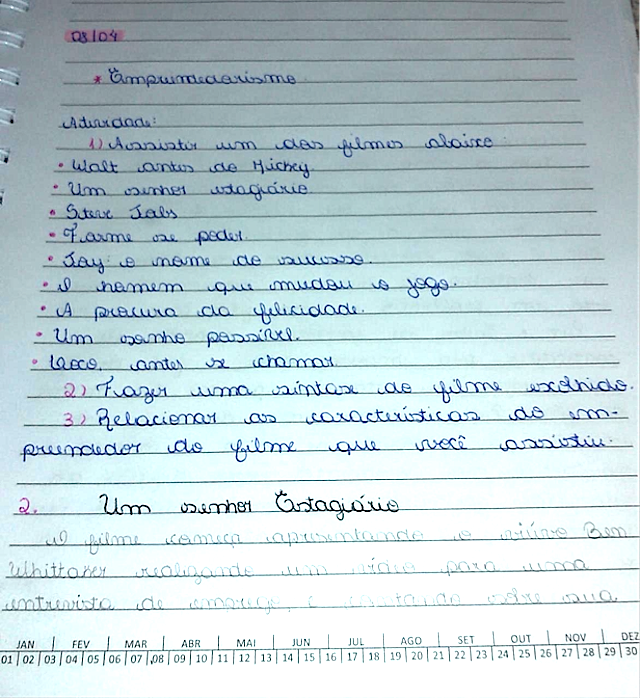 08/04
* Emprendedorismo
Atividade:
1) Assistir um dos filmes abaixo:
• Walt antes do Mickey
• Um senhor estagiário
• Steve Jobs
• Fome de poder
• Joy: o nome do sucesso.
• O homem que mudou o jogo.
• A procura da felicidade.
• Um sonho possível.
• Você. antes se chamar
2) Fazer uma síntese do filme escolhido.
3) Relacionar as características do em-
preendedor do filme que você assistiu.
2. Um senhor Estagiário
O filme começa apresentando o viúvo Ben
Whittaker realizando um vídeo para uma
entrevista de emprego, e contando sobre sua
JAN FEV MAR ABR MAI JUN JUL AGO SET OUT NOV DEZ
01 02 03 04 05 06 07 08 09 10 11 12 13 14 15 16 17 18 19 20 21 22 23 24 25 26 27 28 29 30